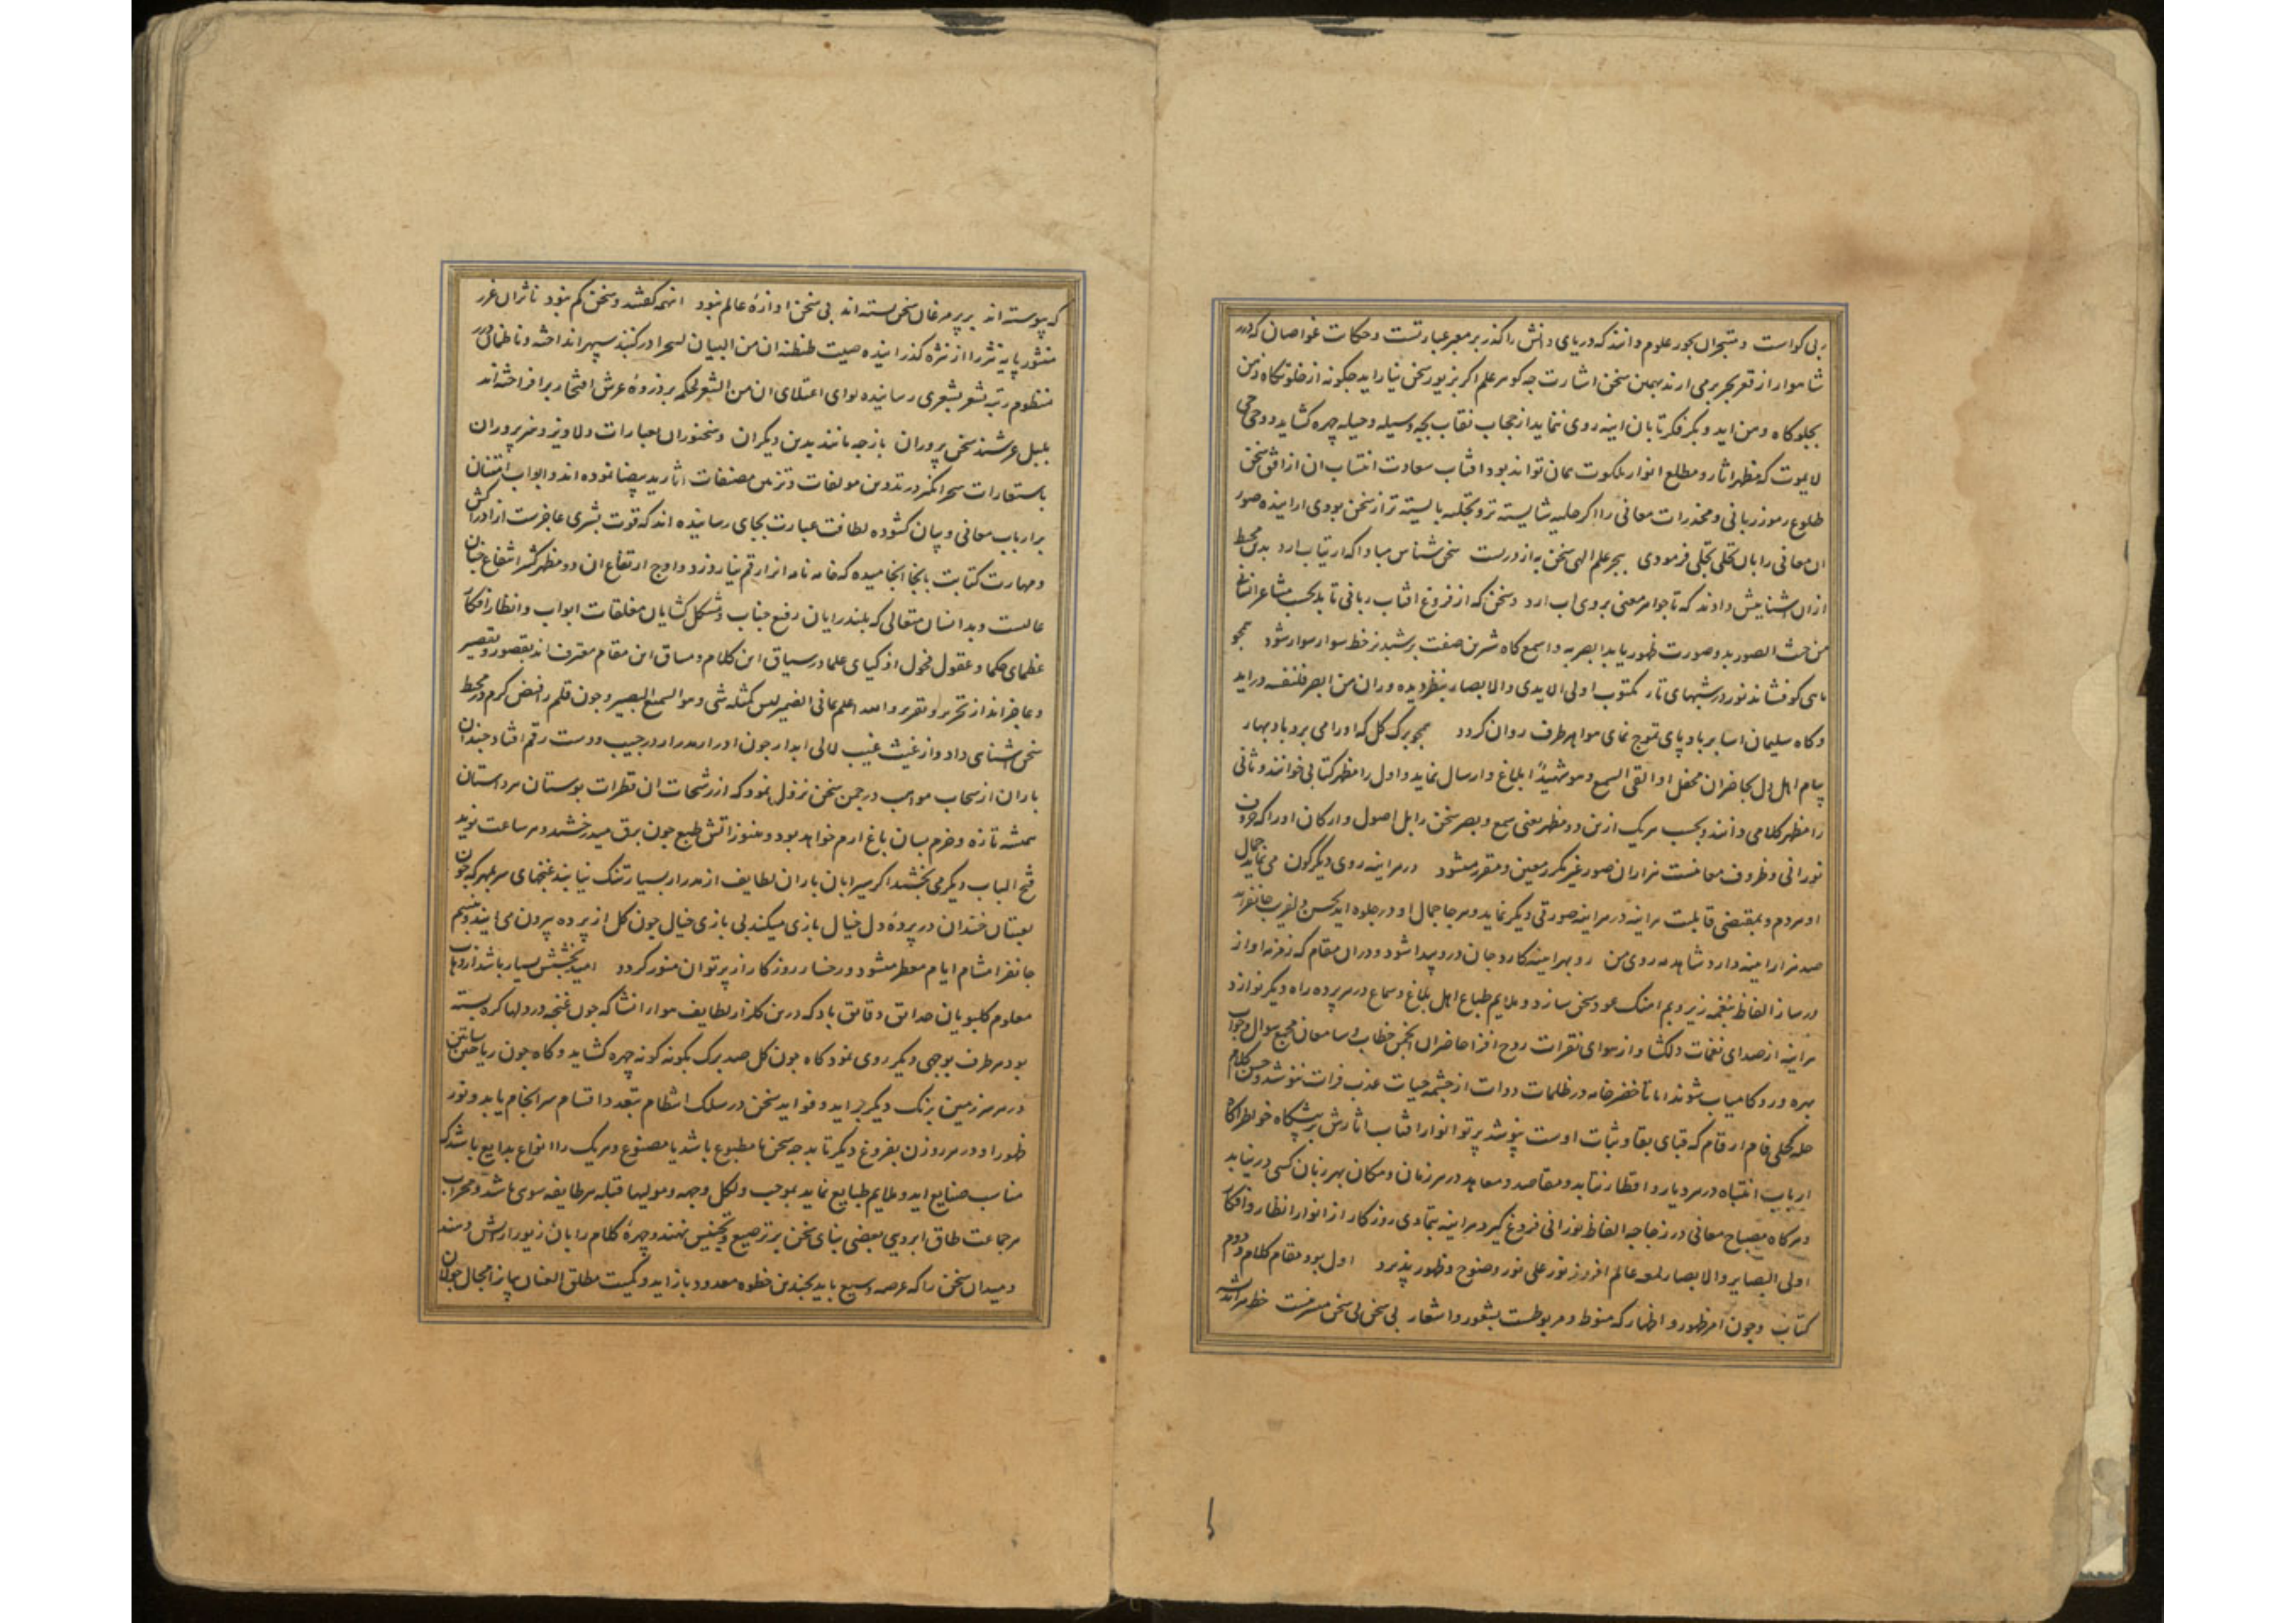 بی کواست و متبحران بحور علوم دانند که دریای دانش را کذر بر معبر عبارتست و حکات غواصان که درر
شاموار از قعر بحر برمی ارند بهمین سخن اشارت چه کوهر علم اکر بزیور سخن نیاراید چکونه از خلوتکاه ذهن
بجلوکاه ومن اید و بکر فکر تا بان اینه روی ننماید از حجاب نقاب بچه وسیله و حیله چهره کشاید و وحی حی
لایموت که مظهر اثار و مطلع انوار ملکوت همان تواند بود افتاب سعادت انتساب ان از افق سخن
طلوع رموز ربانی و مخدرات معانی را اکر حلیه شایسته تر و تجلیه بایسته تر از سخن بودی اراینده صور
ان معانی را بان تحلی تجلی فرمودی بحر علم الهی سخن به از درست سخن شناس مبادا که ارتیاب ارد بدین محیط
ازان اشنایش دادند که تا جواهر معنی بروی اب ارد و سخن که از فروغ افتاب ربانی تابد بحسب مشاعر انسانی
من حیث الصور بدو صورت ظهور یابد ابصر به و اسمع کاه شرین صفت بر شبدیز خط سوار سوار شود همچو
ماهی کو فشاند نور در شبهای تار مکتوب اولی الایدی والابصار بنظر دیده وران من ابصر فلنفسه در اید
و کاه سلیمان اسا بر باد پای تموج نمای هوا بهر طرف روان کردد همچو برک کل که اورا می برد باد بهار
پیام اهل دل بحاضران محفل او القی السمع وهو شهید ابلاغ و ارسال نماید و اول را مظهر کتابی خوانند و ثانی
را مظهر کلامی دانند و بحسب هر یک ازین دو مظهر یعنی سمع و بصر سخن را بل اصول و ارکان اورا که حروف
نورانی و ظروف معانیست هزاران صور غیر مکرر معین و مقرر میشود در هر اینه روی دیکر کون می نماید جمال
او هر دم و بمقتضی قابلیت هر اینه در هر اینه صورتی دیکر نماید و هر جا جمال او در جلوه اید بحسن دلفریب جانفزاید
صد هزار اینه دارد شاهد مه روی من رو بهر اینه کارد جان درو پیدا شود و دران مقام که زخرفه اواز
در ساز الفاظ بنغمه زیر و بم اهنک عود سخن سازد و ملایم طباع اهل بلاغ و سماع در هر پرده راه دیکر نوازد
هر اینه از صدای نغمات دلکشا و از هوای نقرات روح افزا حاضران انجمن خطاب و سامعان مجمع سوال و جواب
بهره ور و کامیاب شوند اما تا خضر خامه در ظلمات دوات از چشمه حیات عذب فرات ننوشد و حسن کلام
حله کحلی فام ارقام که قبای بقا و ثبات اوست نپوشد پرتو انوار افتاب اثارش بر پیشکاه خواطر اکاه
ارباب انتباه در هر دیار و اقطار نتابد و مقاصد و معاهد در هر زمان و مکان بهر زبان کسی در نیابد
و هر کاه مصباح معانی در زجاجه الفاظ نورانی فروغ کیرد هر اینه بتمادی روزکار از انوار انظار و افکار
اولی البصایر والابصار لمعه عالم افروز نور علی نور وضوح و ظهور پذیرد اول بود مقام کلام و دوم
کتاب و چون امر ظهور و اظهار که منوط و مربوطست بشعور و اشعار بی سخن بی سخن میسر نیست خط مراتب
که پیوسته اند بر پر مرغان سخن بسته اند بی سخن اوازۀ عالم نبود اینهمه کفتند و سخن کم نبود ناثران غرر
منثور پایه نثر را از نثره کذرانیده صیت طنطنه ان من البیان لسحرا در کنبذ سپهر انداخته و ناظمان درر
منظوم رتبه شعر بشعری رسانیده لوای اعتلای ان من الشعر لحکمه بر ذروۀ عرش افتخار برافراخته اند
بلبل عرشند سخن پروران باز چه مانند بدین دیکران و سخنوران بعبارات دلاویز و هنرپروران
باستعارات سحرانکیز در تدوین مولفات و تزیین مصنفات اثار ید بیضا نموده اند و ابواب امتنان
بر ارباب معانی و بیان کشوده لطافت عبارت بجای رسانیده اند که قوت بشری عاجزست از ادراکش
و مهارت کتابت بانجا انجامیده که خامه نامه انرا رقم نیاروزد و اوج ارتفاع ان دو مظهر کثیر انتفاع چنان
عالیست و بدانسان متعالی که بلند رایان رفیع جناب و مشکل کشایان مغلقات ابواب و انظار افکار
عظمای حکما و عقول فحول اذکیای علما در سیاق این کلام و مساق این مقام معترف اند بقصور و تقصیر
و عاجزاند از تحریر و تقریر والله اعلم بما فی الضمیر لیس کمثله شی وهو السمیع البصیر و چون قلم را فیض کرم در محیط
سخن اشنای داد و از غیث غیب لالی ابدار چون ادرار مدرار در جیب دوست رقم افتاد چندان
باران از سحاب مواهب در چمن سخن نزول نمود که از رشحات ان قطرات بوستان هر داستان
همیشه تازه و خرم بسان باغ ارم خواهد بود و هنوز اتش طبع چون برق میدرخشد و هر ساعت نوید
فتح الباب دیکر می بخشد اکر سیرابان باران لطایف از مدرار بسیار تنک نیابند غنچهای سربمهر که چون
لعبتان خندان در پردۀ دل خیال بازی میکنند بی بازی خیال چون کل از پرده بیرون می ایند و بنسیم
جانفزا مشام ایام معطر میشود و رخسار روزکار از پرتو ان منور کردد امید بخشش بسیار باشد از وهاب
معلوم کلبویان حدایق دقایق باد که درین کلزار لطایف هوا را انشا که چون غنچه در دلها کره بسته
بود هر طرف بوجهی دیکر روی نمود کاه چون کل صد برک بکونه کونه چهره کشاید و کاه چون ریاحین بساتین
در هر سرزمین برنک دیکر براید و فواید سخن در سلک انتظام بتعدد اقسام سرانجام یابد و نور
ظهور او در هر روزن بفروغ دیکر تابد چه سخن یا مطبوع باشد یا مصنوع و هر یک را انواع بدایع باشد که
مناسب صنایع اید و ملایم طبایع نماید بموجب ولکل وجهه هو مولیها قبله هر طایفه سوی باشد و محراب
هر جماعت طاق ابرویی بعضی بنای سخن بر ترصیع و تجنیس نهند و چهرۀ کلام را بان زیور ارایش دهند
و میدان سخن را که عرصه وسیع باید بچندین خطوه معدود بازاید و کمیت مطلق العنان بیان را مجال جولان